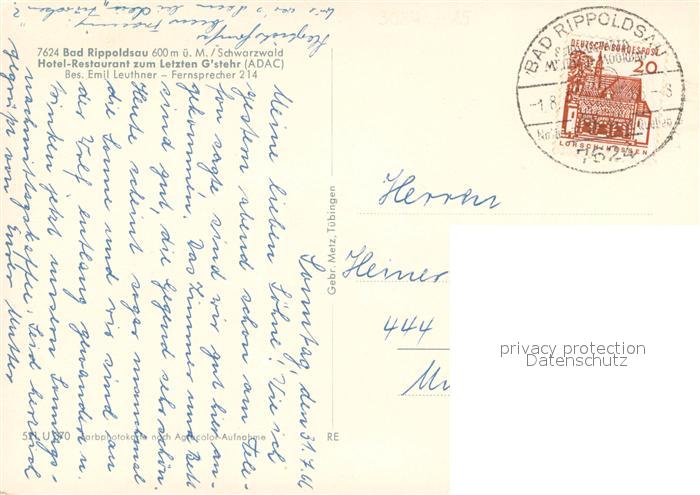 7624 Bad Rippoldsau 600 m ü. M. / Schwarzwald
Hotel-Restaurant zum Letzten G'stehr (ADAC)
Bes. Emil Leuthner – Fernsprecher 214
Sonntag, den 31.7.66
Meine lieben Söhne! Wie ich
gestern abend schon am Tele-
fon sagte sind wir gut hier an-
gekommen. Das Zimmer und Bett
sind gut, die Gegend sehr schön.
Heute scheint sogar manchmal
die Sonne und wir sind an
der Wolf entlang gewandert u.
trinken jetzt unseren Sonntags-
nachmittagskaffee. Seid herzlich
gegrüßt von Eurer Mutter
Herzliche Grüße
Gebr. Metz, Tübingen
BAD RIPPOLDSAU
-1.8.
-8
7624
DEUTSCHE BUNDESPOST
20
LORSCH/HESSEN
Herren
Heiner
444
privacy protection
Datenschutz
Farbphotokarte nach Agfacolor-Aufnahme
RE